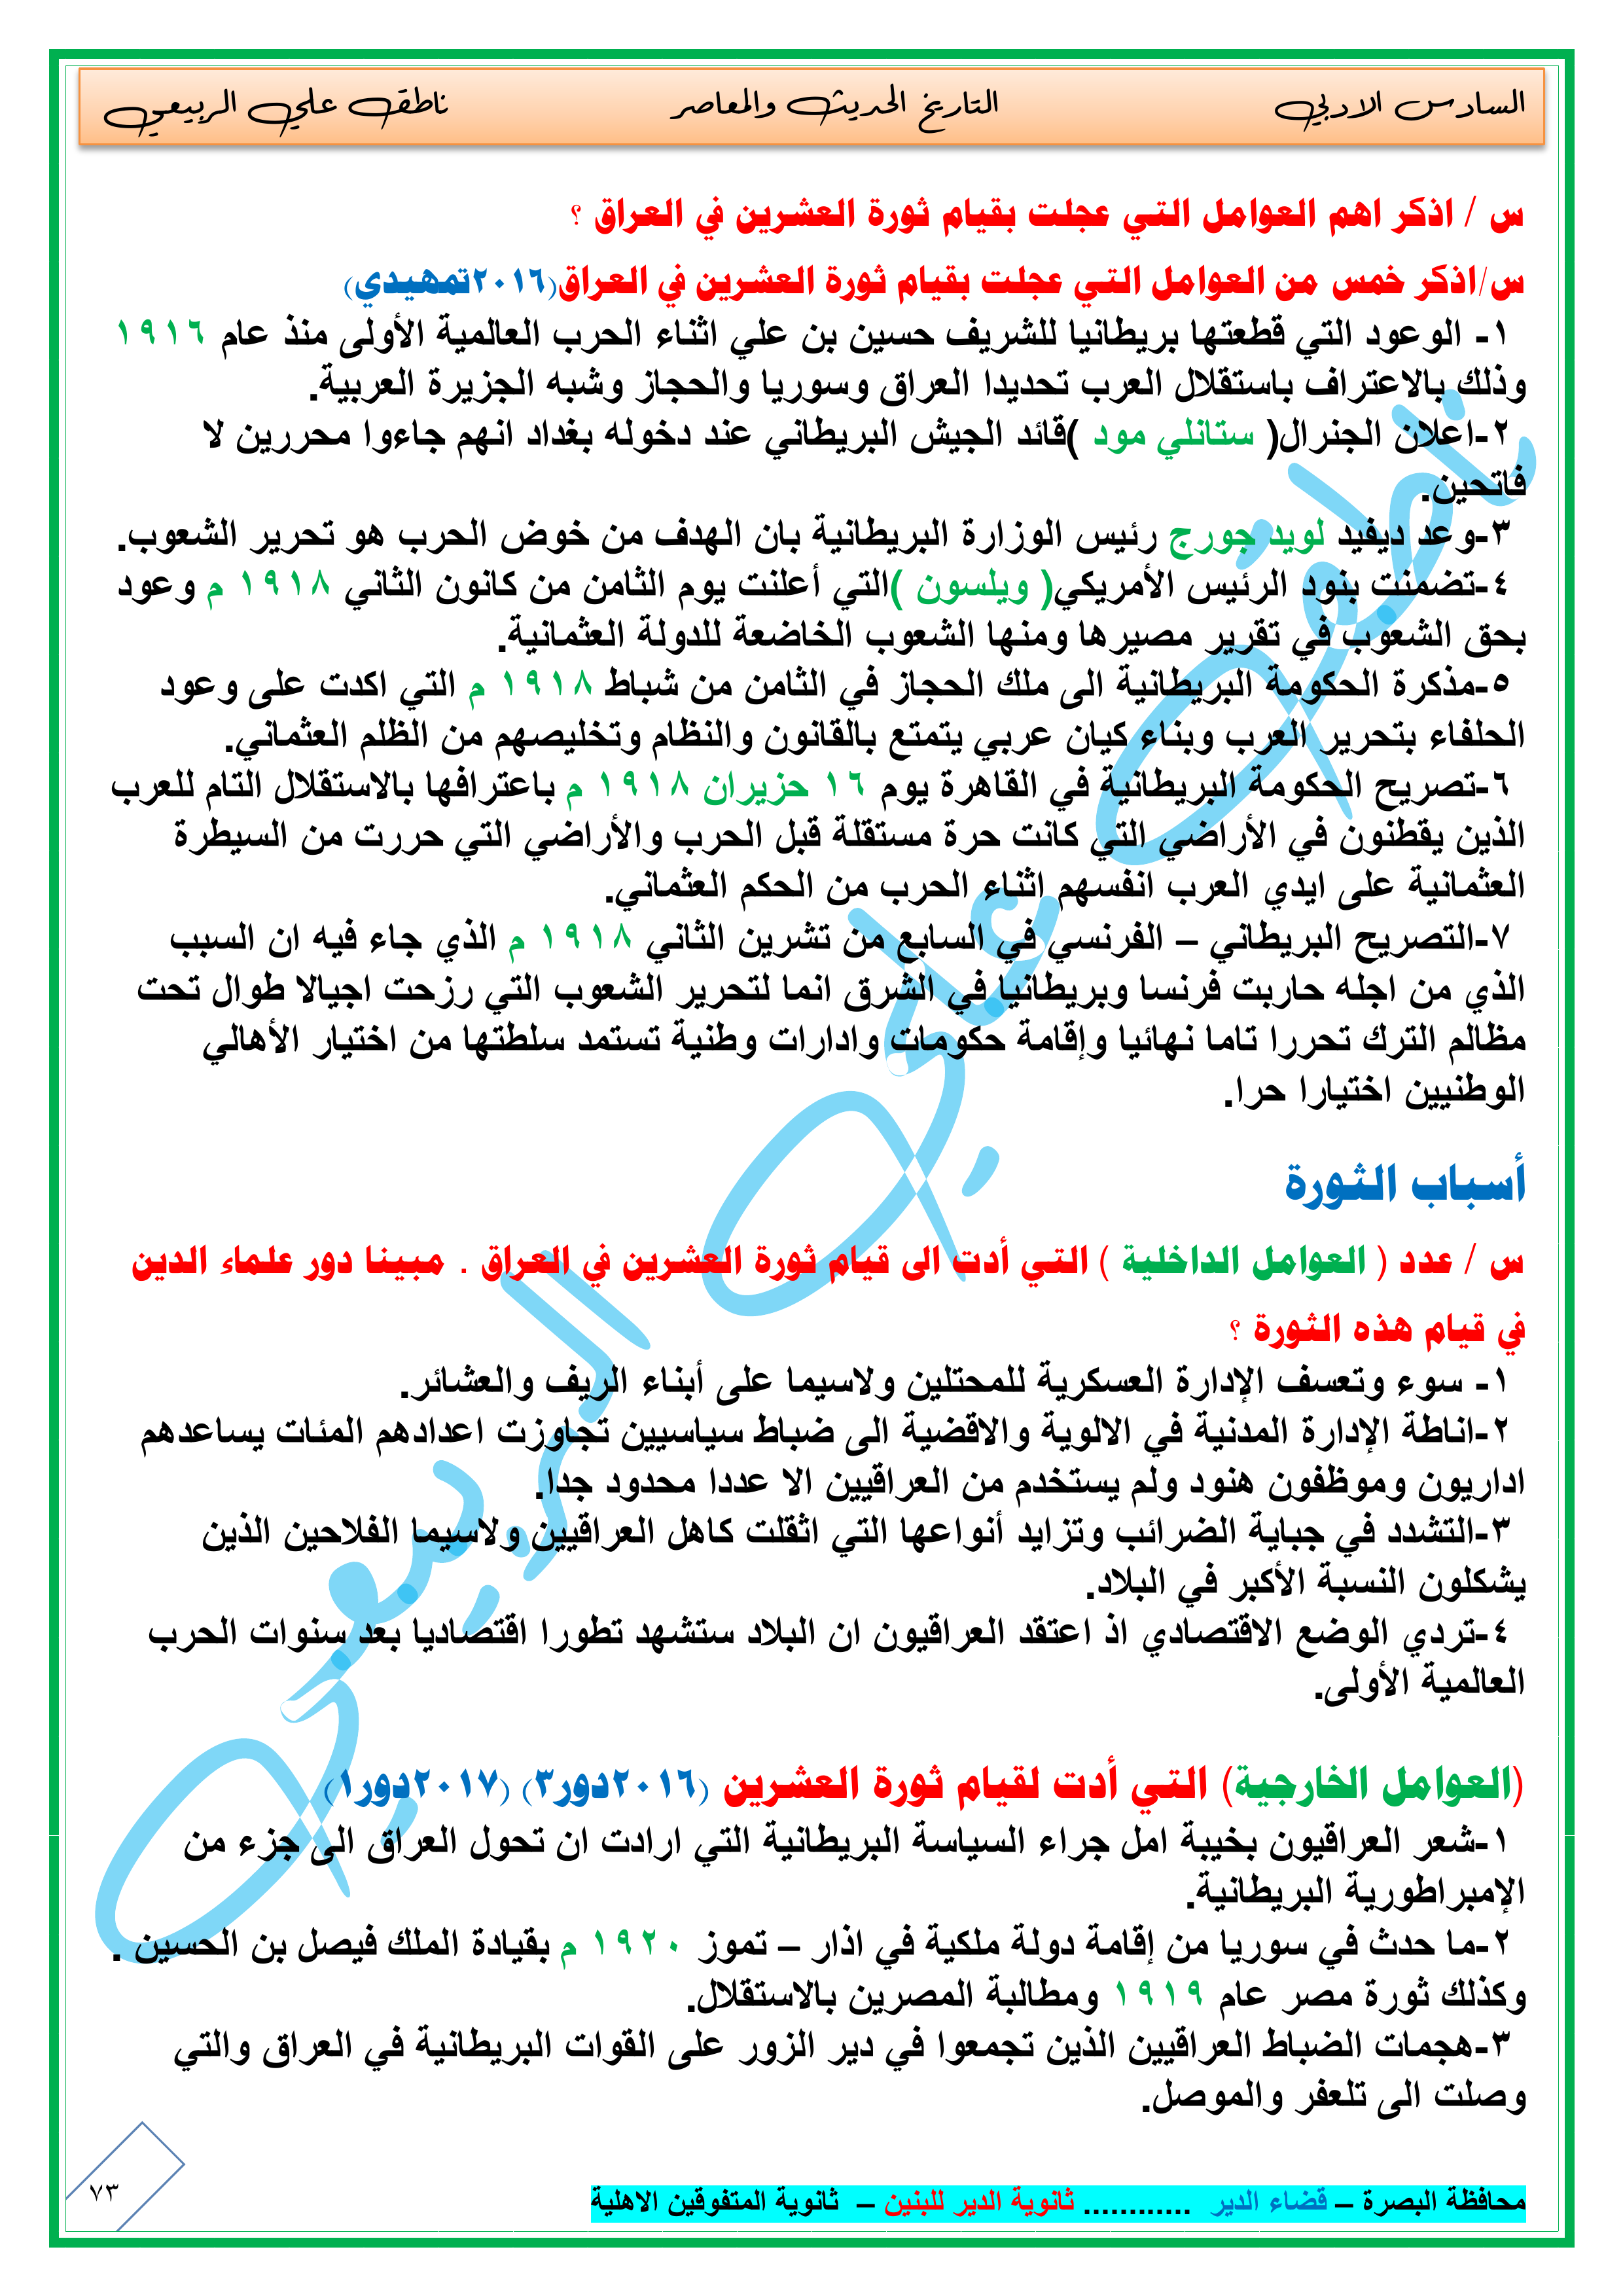 السادس الادبي التاريخ الحديث والمعاصر ناطق علي الربيعي
س / اذكر اهم العوامل التي عجلت بقيام ثورة العشرين في العراق ؟
س/اذكر خمس من العوامل التي عجلت بقيام ثورة العشرين في العراق(٢٠١٦تمهيدي)
١- الوعود التي قطعتها بريطانيا للشريف حسين بن علي اثناء الحرب العالمية الأولى منذ عام ١٩١٦
وذلك بالاعتراف باستقلال العرب تحديدا العراق وسوريا والحجاز وشبه الجزيرة العربية.
٢-اعلان الجنرال( ستانلي مود )قائد الجيش البريطاني عند دخوله بغداد انهم جاءوا محررين لا
فاتحين.
٣-وعد ديفيد لويد جورج رئيس الوزارة البريطانية بان الهدف من خوض الحرب هو تحرير الشعوب.
٤-تضمنت بنود الرئيس الأمريكي( ويلسون )التي أعلنت يوم الثامن من كانون الثاني ١٩١٨ م وعود
بحق الشعوب في تقرير مصيرها ومنها الشعوب الخاضعة للدولة العثمانية.
٥-مذكرة الحكومة البريطانية الى ملك الحجاز في الثامن من شباط ١٩١٨ م التي اكدت على وعود
الحلفاء بتحرير العرب وبناء كيان عربي يتمتع بالقانون والنظام وتخليصهم من الظلم العثماني.
٦-تصريح الحكومة البريطانية في القاهرة يوم ١٦ حزيران ١٩١٨ م باعترافها بالاستقلال التام للعرب
الذين يقطنون في الأراضي التي كانت حرة مستقلة قبل الحرب والأراضي التي حررت من السيطرة
العثمانية على ايدي العرب انفسهم اثناء الحرب من الحكم العثماني.
٧-التصريح البريطاني – الفرنسي في السابع من تشرين الثاني ١٩١٨ م الذي جاء فيه ان السبب
الذي من اجله حاربت فرنسا وبريطانيا في الشرق انما لتحرير الشعوب التي رزحت اجيالا طوال تحت
مظالم الترك تحررا تاما نهائيا وإقامة حكومات وادارات وطنية تستمد سلطتها من اختيار الأهالي
الوطنيين اختيارا حرا.
أسباب الثورة
س / عدد ( العوامل الداخلية ) التي أدت الى قيام ثورة العشرين في العراق . مبينا دور علماء الدين
في قيام هذه الثورة ؟
١- سوء وتعسف الإدارة العسكرية للمحتلين ولاسيما على أبناء الريف والعشائر.
٢-اناطة الإدارة المدنية في الالوية والاقضية الى ضباط سياسيين تجاوزت اعدادهم المئات يساعدهم
اداريون وموظفون هنود ولم يستخدم من العراقيين الا عددا محدود جدا.
٣-التشدد في جباية الضرائب وتزايد أنواعها التي اثقلت كاهل العراقيين ولاسيما الفلاحين الذين
يشكلون النسبة الأكبر في البلاد.
٤-تردي الوضع الاقتصادي اذ اعتقد العراقيون ان البلاد ستشهد تطورا اقتصاديا بعد سنوات الحرب
العالمية الأولى.
(العوامل الخارجية) التي أدت لقيام ثورة العشرين (٢٠١٦دور٣) (٢٠١٧دور١)
١-شعر العراقيون بخيبة امل جراء السياسة البريطانية التي ارادت ان تحول العراق الى جزء من
الإمبراطورية البريطانية.
٢-ما حدث في سوريا من إقامة دولة ملكية في اذار – تموز ١٩٢٠ م بقيادة الملك فيصل بن الحسين .
وكذلك ثورة مصر عام ١٩١٩ ومطالبة المصرين بالاستقلال.
٣-هجمات الضباط العراقيين الذين تجمعوا في دير الزور على القوات البريطانية في العراق والتي
وصلت الى تلعفر والموصل.
محافظة البصرة – قضاء الدير ............ ثانوية الدير للبنين – ثانوية المتفوقين الاهلية
٧٣
ناطق علي الربيعي